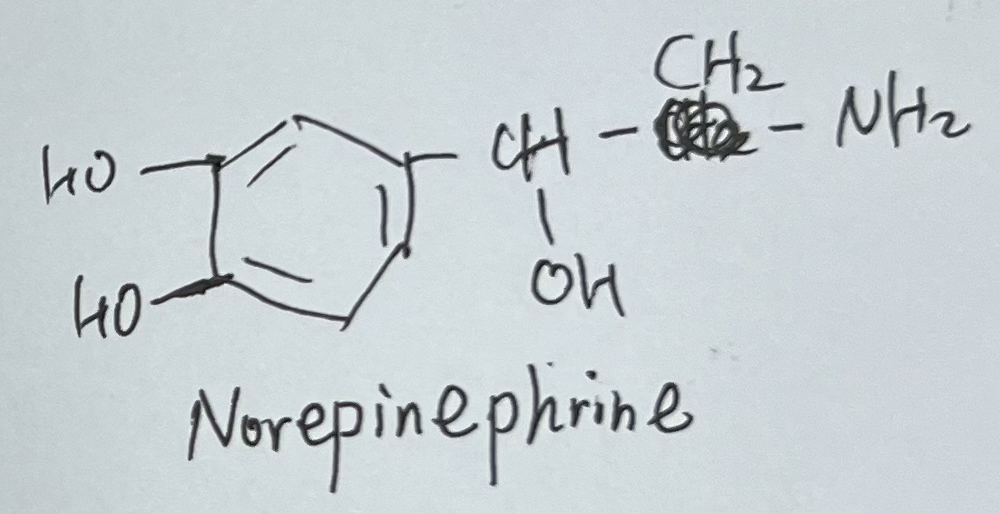 CH2
HO CH - - NH2
HO OH
Norepinephrine